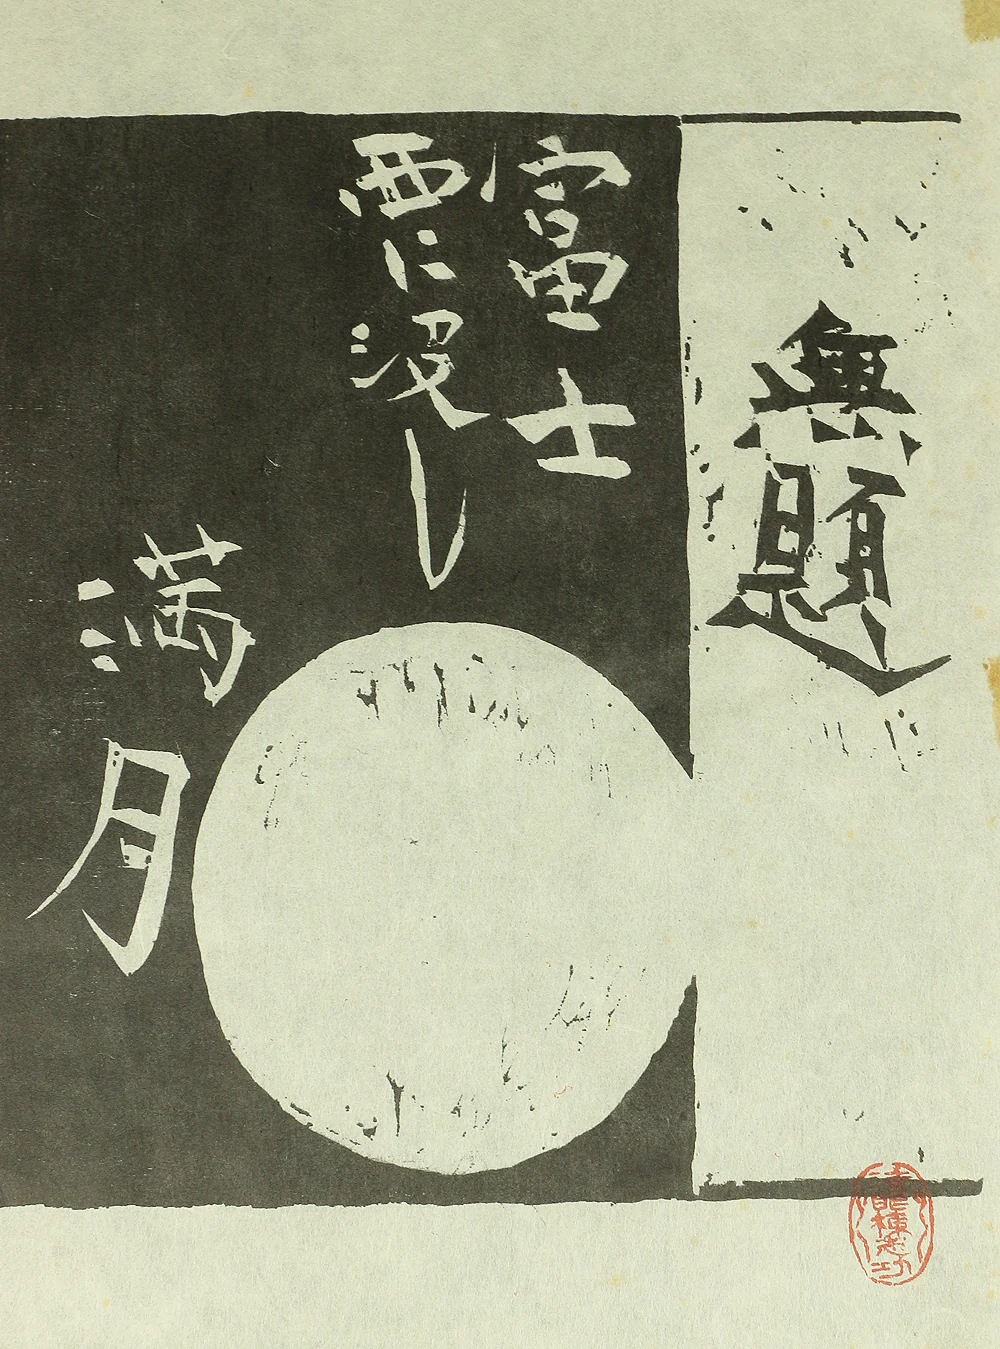 無題
富士
西に没し
満月